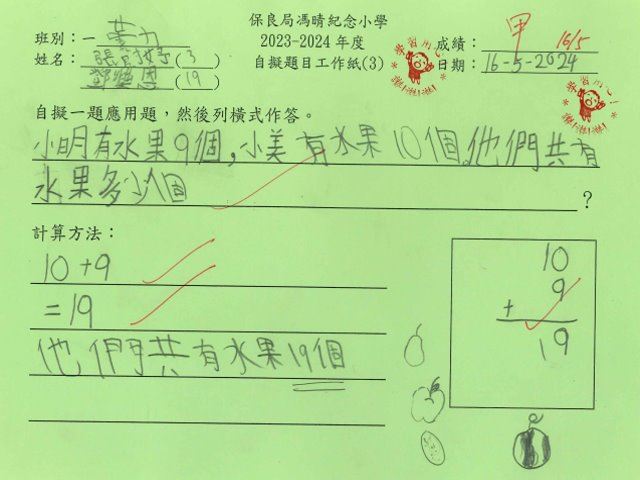 保良局馮晴紀念小學
班別：一 黃力
2023-2024 年度
成績： 甲 16/5
姓名： (3)
(19)
自擬題目工作紙(3)
日期： 16-5-2024
自擬一題應用題，然後列橫式作答。
小明有水果9個，小美有水果10個，他們共有
水果多少個 ？
計算方法：
10+9
=19
他們共有水果19個
10
9
+
19